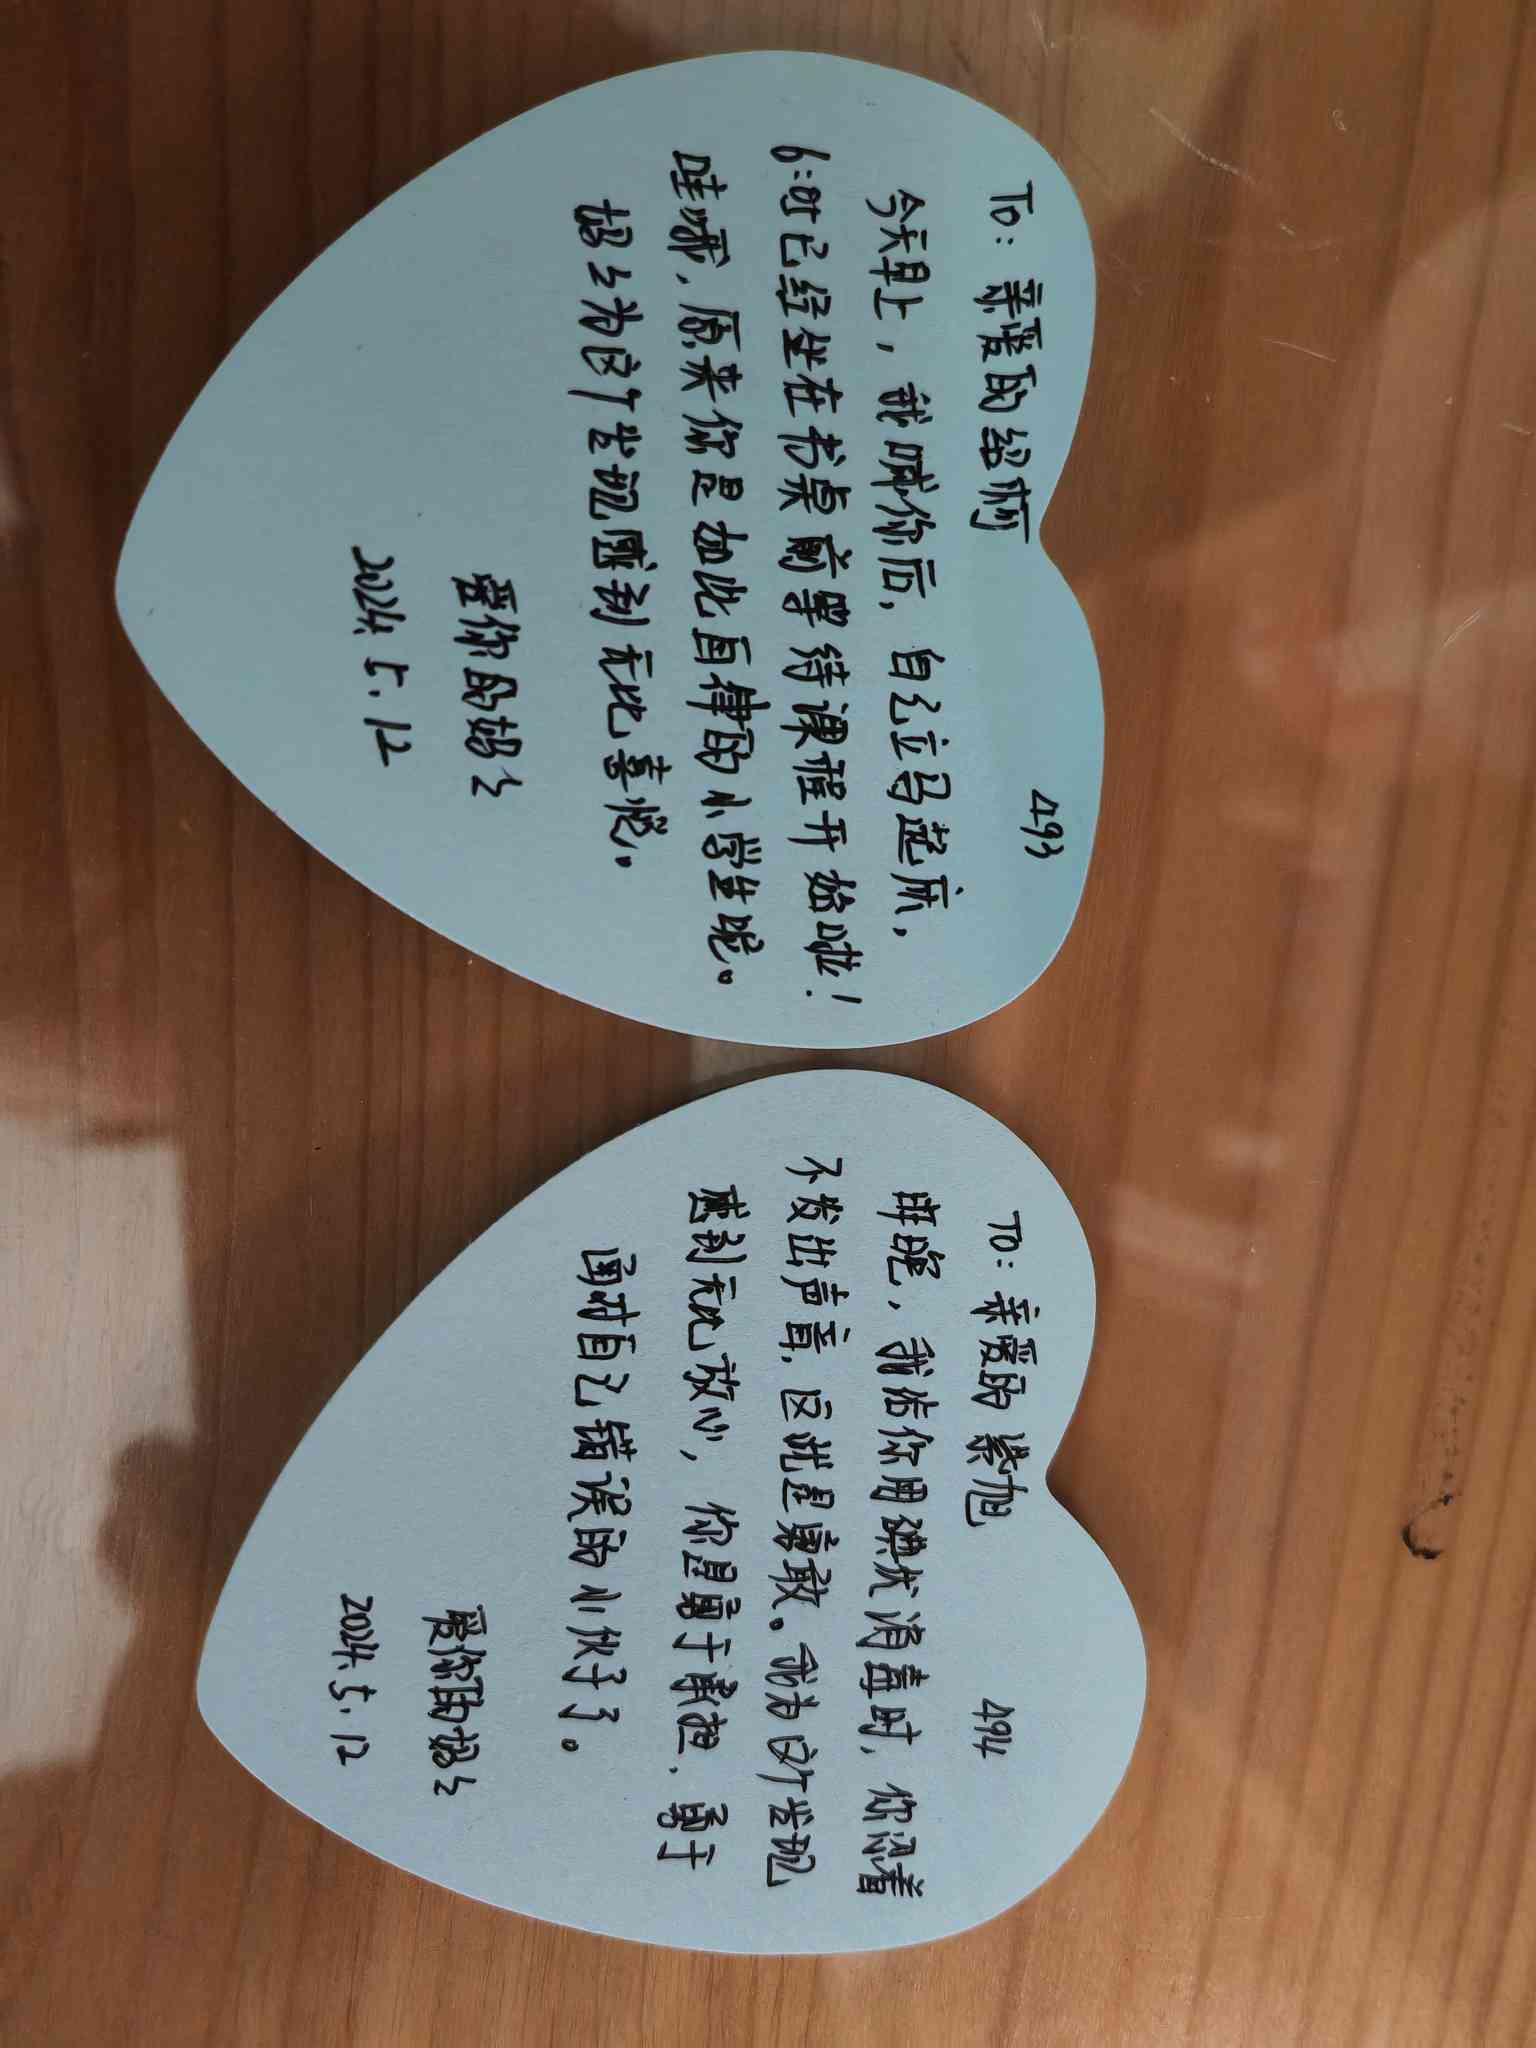 493
To: 亲爱的绍柯
今天早上，我喊你后，自己立马起床，
6:时已经坐在书桌前等待课程开始啦！
哇哦，原来你是如此自律的小学生呢。
妈妈为这个发现感到无比喜悦。
爱你的妈妈
2024.5.12
494
To: 亲爱的紫旭
昨晚，我给你用碘伏消毒时，你忍着
不发出声音，这就是勇敢。我为这个发现
感到无比放心，你是勇于承担，勇于
面对自己错误的小伙子了。
爱你的妈妈
2024.5.12